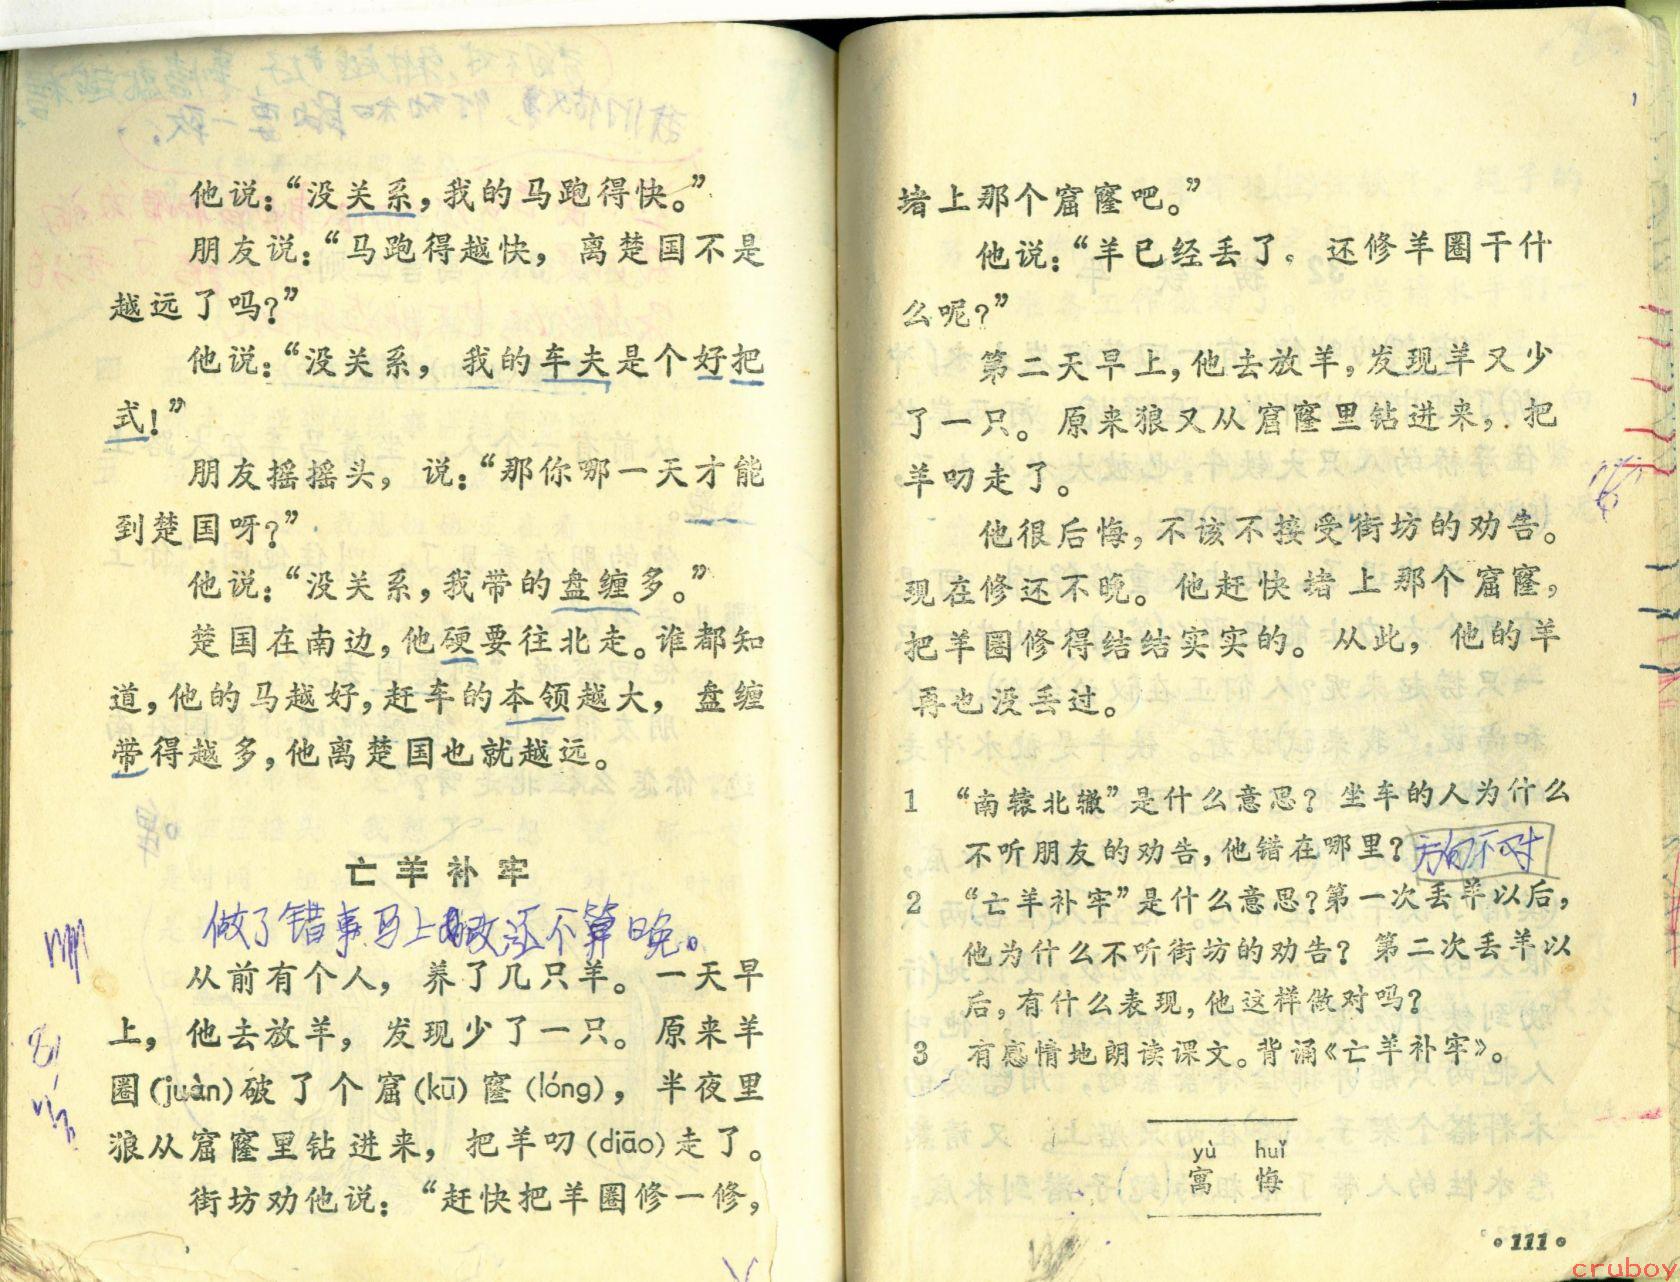 他说：“没关系，我的马跑得快。”
朋友说：“马跑得越快，离楚国不是
越远了吗？”
他说：“没关系，我的车夫是个好把
式！”
朋友摇摇头，说：“那你哪一天才能
到楚国呀？”
他说：“没关系，我带的盘缠多。”
楚国在南边，他硬要往北走。谁都知
道，他的马越好，赶车的本领越大，盘缠
带得越多，他离楚国也就越远。
亡羊补牢
做了错事马上改还不算晚。
从前有个人，养了几只羊。一天早
上，他去放羊，发现少了一只。原来羊
圈(juàn)破了个窟(kū)窿(lóng)，半夜里
狼从窟窿里钻进来，把羊叼(diāo)走了。
街坊劝他说：“赶快把羊圈修一修，
堵上那个窟窿吧。”
他说：“羊已经丢了。还修羊圈干什
么呢？”
第二天早上，他去放羊，发现羊又少
了一只。原来狼又从窟窿里钻进来，把
羊叼走了。
他很后悔，不该不接受街坊的劝告。
现在修还不晚。他赶快堵上那个窟窿，
把羊圈修得结结实实的。从此，他的羊
再也没丢过。
1 “南辕北辙”是什么意思？坐车的人为什么
不听朋友的劝告，他错在哪里？方向不对
2 “亡羊补牢”是什么意思？第一次丢羊以后，
他为什么不听街坊的劝告？第二次丢羊以
后，有什么表现，他这样做对吗？
3 有感情地朗读课文。背诵《亡羊补牢》。
yù huǐ
寓 悔
•111•
cruboy